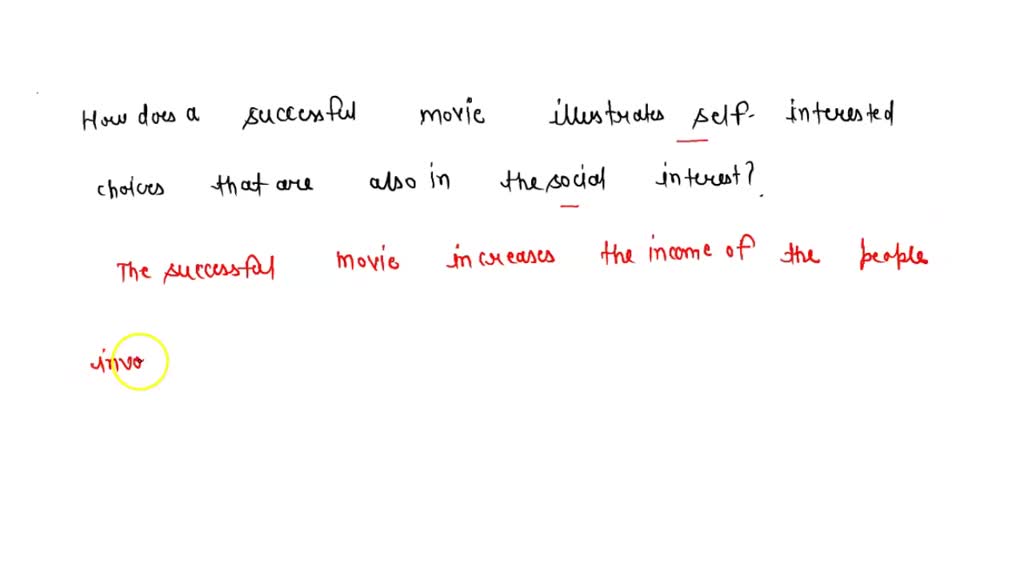 How does a successful movie illustrates self- interested
choices that are also in the social interest?.
The successful movie increases the income of the people
invo